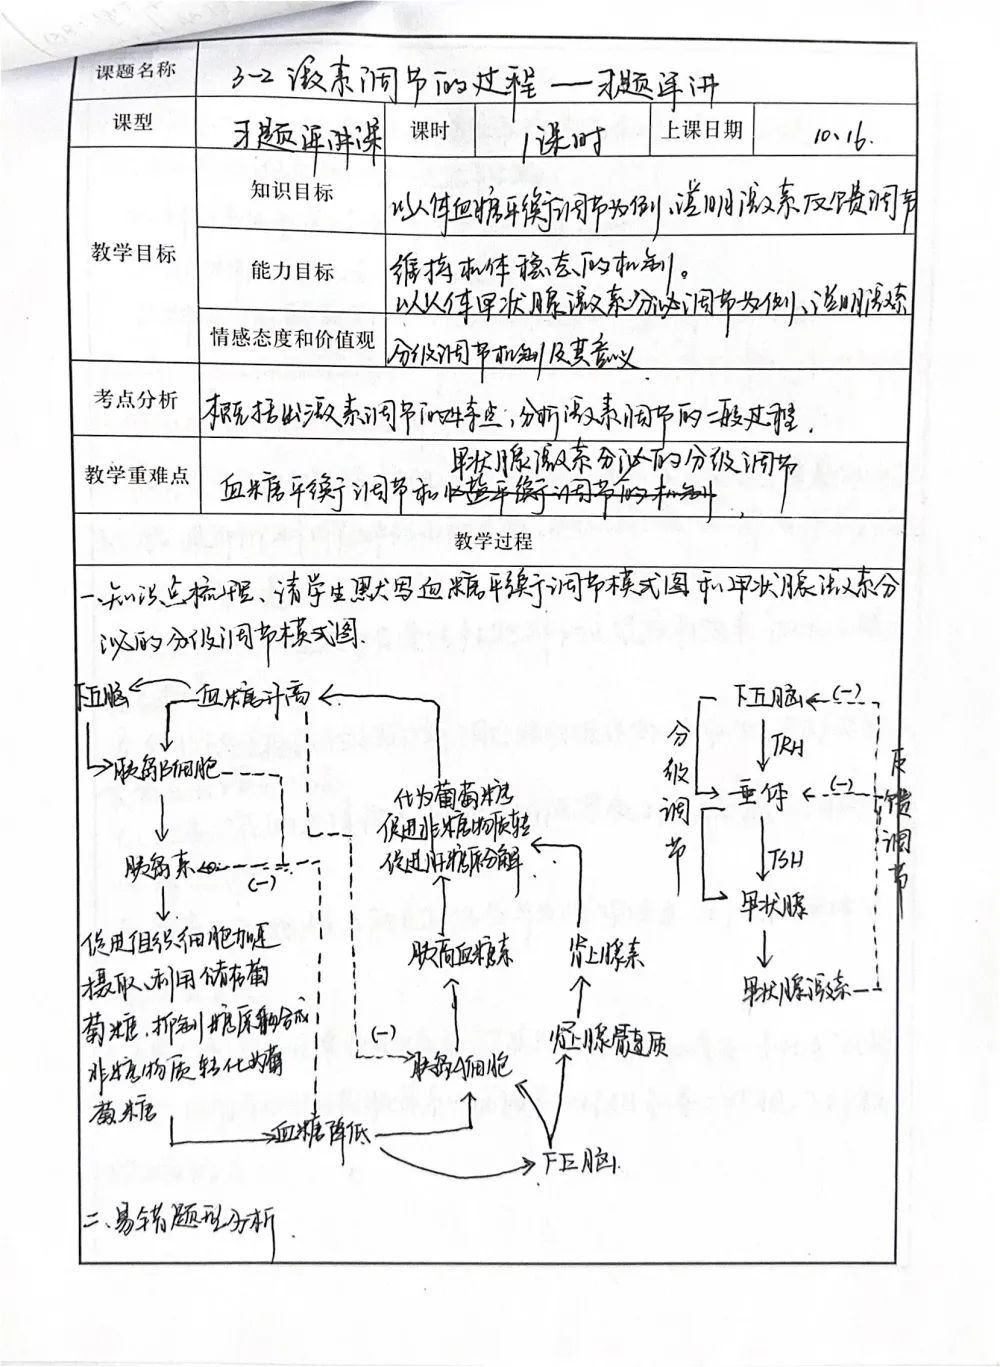 课题名称 3-2 激素调节的过程——习题评讲
课型 习题评讲课 课时 1课时 上课日期 10.16.
教学目标
知识目标 以人体血糖平衡调节为例,说明激素反馈调节
能力目标 维持机体稳态的机制。
以人体甲状腺激素分泌调节为例,说明激素
情感态度和价值观 分级调节机制及其意义
考点分析 概括出激素调节的特点,分析激素调节的一般过程.
教学重难点 甲状腺激素分泌的分级调节
血糖平衡调节和
教学过程
一、知识点梳理、请学生默写血糖平衡调节模式图和甲状腺激素分
泌的分级调节模式图.
下丘脑 血糖升高
胰岛B细胞
胰岛素 (-)
促进组织细胞加速
摄取、利用储存葡
萄糖,抑制糖原
非糖物质转化为葡
萄糖
血糖降低
化为葡萄糖
促进非糖物质转
促进肝糖原分解
胰高血糖素 肾上腺素
(-)
胰岛A细胞 肾上腺髓质
下丘脑
下丘脑 (-)
TRH
垂体 (-)
TSH
甲状腺
甲状腺激素
分级调节
反馈调节
二、易错题型分析